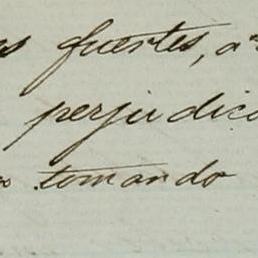 fuertes,
perjudic
tomando